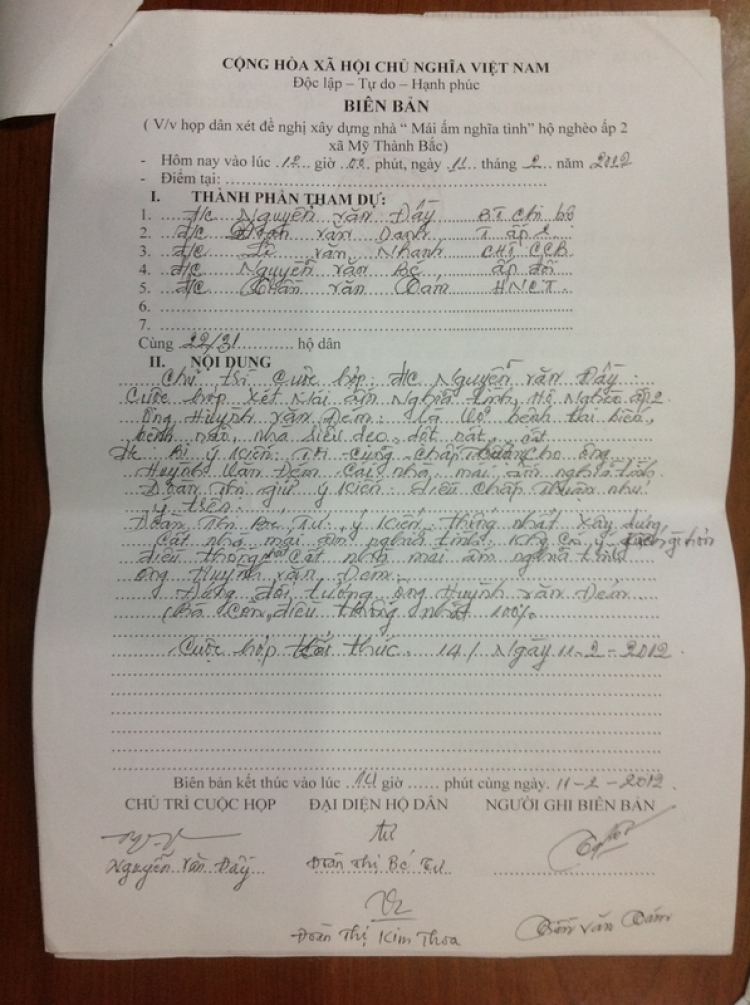 CỘNG HÒA XÃ HỘI CHỦ NGHĨA VIỆT NAM
Độc lập – Tự do – Hạnh phúc
BIÊN BẢN
( V/v họp dân xét đề nghị xây dựng nhà “ Mái ấm nghĩa tình” hộ nghèo ấp 2
xã Mỹ Thành Bắc)
- Hôm nay vào lúc 12 giờ 00 phút, ngày 11 tháng 2 năm 2012
- Điểm tại:
I. THÀNH PHẦN THAM DỰ:
1. đ/c Nguyễn văn Đấy Bí chi bộ
2. đ/c Đoàn văn Danh T ấp 2
3. đ/c Lê văn Nhanh CHT CCB
4. đ/c Nguyễn văn Bé ấp đội
5. đ/c Trần văn Cám HNCT
6.
7.
Cùng 22/31 hộ dân
II. NỘI DUNG
Chủ trì cuộc họp: đ/c Nguyễn văn Đấy
Cuộc họp xét Mái ấm Nghĩa tình, Hộ Nghèo ấp 2
ông Huỳnh văn Đém: là Vợ bệnh tai biến,
bệnh não, nhà siêu dẹo, dột nát, cất
ý kiến: Tôi cũng chấp thuận cho ông
Huỳnh Văn Đém cái nhà mái ấm nghĩa tình
Đoàn Thị ý kiến điều chấp thuận như
ý trên
Đoàn Thị Bé Tư: ý kiến thống nhất xây dựng
cất nhà mái ấm nghĩa tình. không có ý gì hơn
điều thống nhất cất nhà mái ấm nghĩa tình
ông Huỳnh văn Đém.
Đúng đối tượng ông Huỳnh văn Đém
Bà con điều thống nhất 100%
Cuộc họp kết thúc 14h Ngày 11-2-2012
Biên bản kết thúc vào lúc 14 giờ ...... phút cùng ngày. 11-2-2012.
CHỦ TRÌ CUỘC HỌP ĐẠI DIỆN HỘ DÂN NGƯỜI GHI BIÊN BẢN
tư
Nguyễn Văn Đấy Đoàn Thị Bé Tư
Đoàn Thị Kim Thoa Trần văn Cám